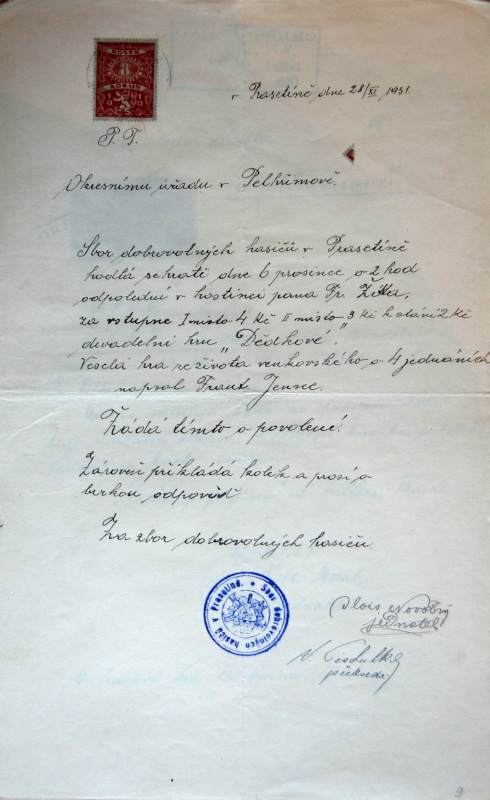 KOLEK
8
KORUN
v Prasetíně dne 28/XI 1931.
P. T.
Okresnímu úřadu v Pelhřimově.
Sbor dobrovolných hasičů v Prasetíně
hodlá sehrati dne 6 prosince o 2 hod
odpolední v hostinci pana Fr. Zíka,
za vstupne I místo 4 Kč II místo 3 Kč k stání 2 Kč
divadelní hru „Dědkové".
Veselá hra ze života venkovského o 4 jednáních
napsal Frant Jenne.
Žádá tímto o povolení!
Zároveň přikládá kolek a prosí o
brzkou odpověď
Za zbor dobrovolných hasičů.
Sbor dobrovolných hasičů v Prasetíně.
Alois Novotný
jednatel
V.
předseda
9